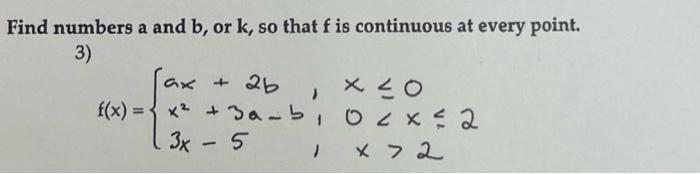 Find numbers a and b, or k, so that f is continuous at every point.
3)
ax + 2b , x ≤ 0
f(x) = { x² + 3a - b , 0 < x ≤ 2
3x - 5 , x > 2